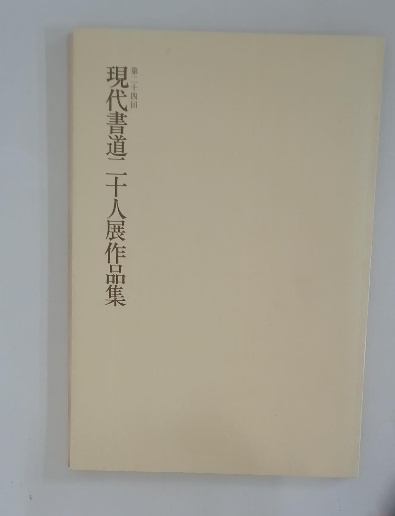 第二十四回
現代書道二十人展作品集